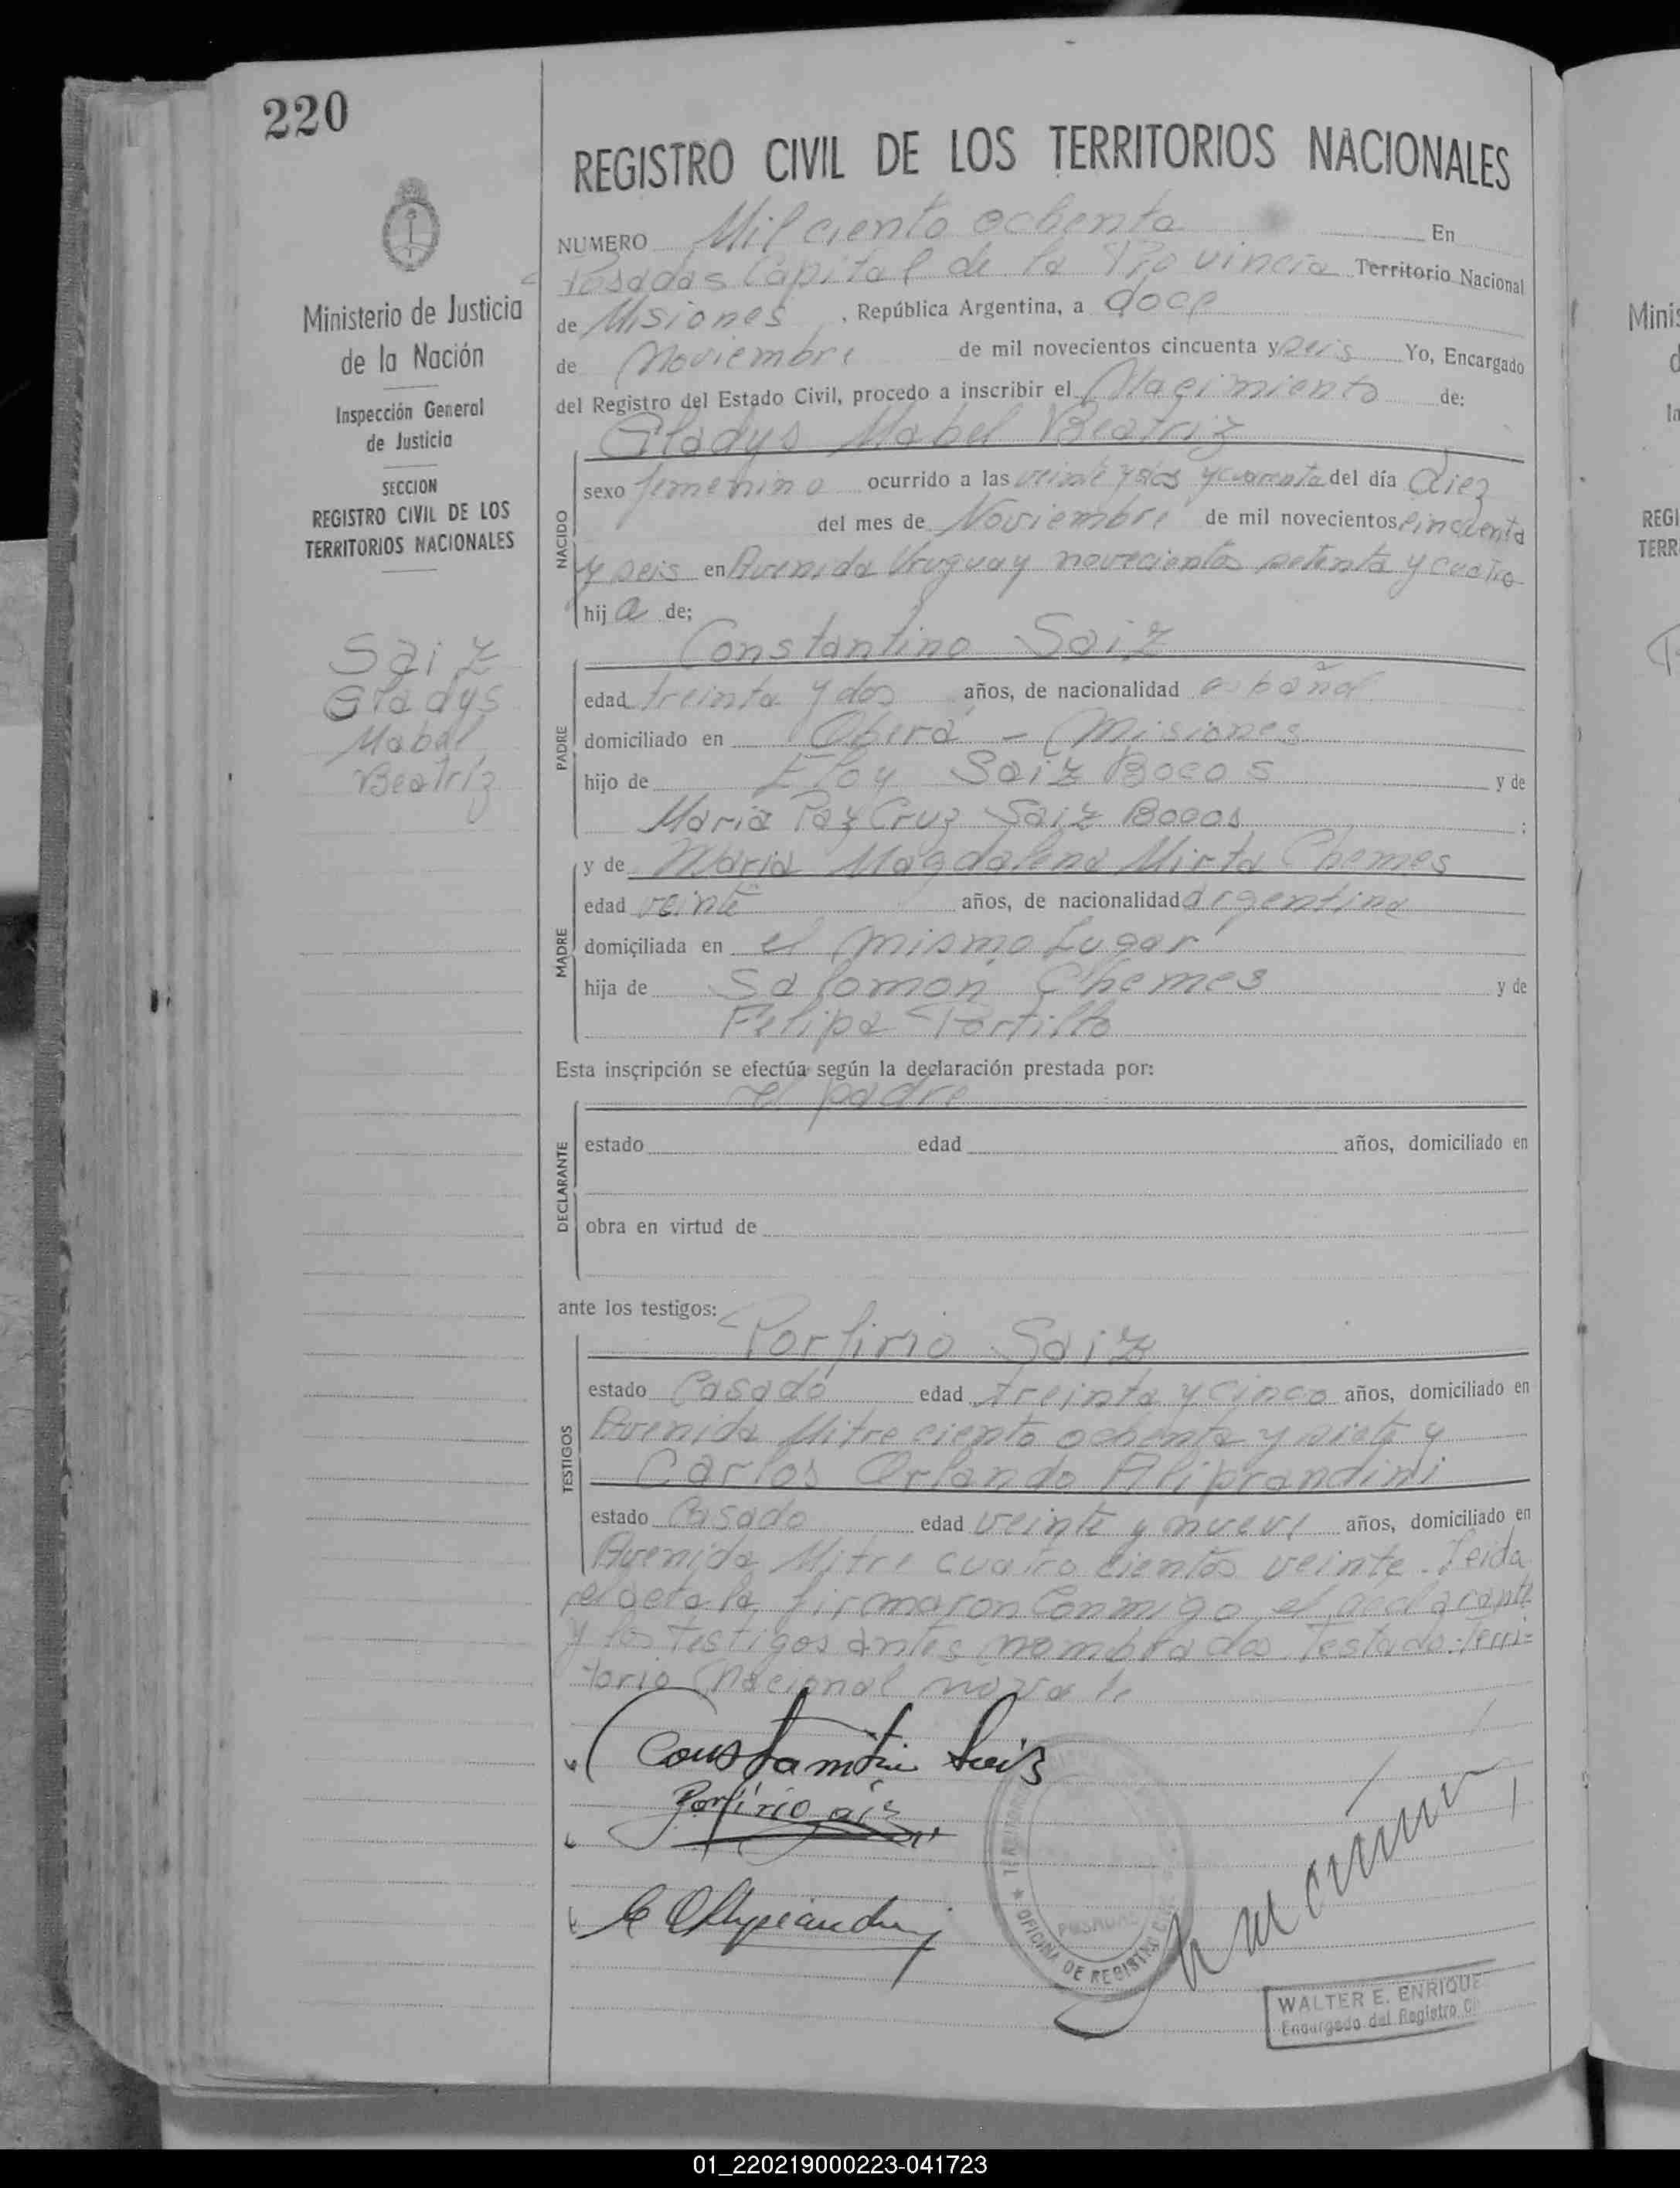 220
Ministerio de Justicia
de la Nación
Inspección General
de Justicia
SECCION
REGISTRO CIVIL DE LOS
TERRITORIOS NACIONALES
Saiz
Gladys
Mabel
Beatriz
REGISTRO CIVIL DE LOS TERRITORIOS NACIONALES
NUMERO Mil ciento ochenta En
Posadas Capital de la Provincia Territorio Nacional
de Misiones, República Argentina, a doce
de Noviembre de mil novecientos cincuenta y seis Yo, Encargado
del Registro del Estado Civil, procedo a inscribir el Nacimiento de:
Gladys Mabel Beatriz
NACIDO
sexo femenino ocurrido a las veinte y dos y cuarenta del día diez
del mes de Noviembre de mil novecientos cincuenta
y seis en Avenida Uruguay novecientos setenta y cuatro
hija de;
Constantino Saiz
PADRE
edad treinta y dos años, de nacionalidad español
domiciliado en Oberá - Misiones
hijo de Eloy Saiz Bocos y de
Maria Paz Cruz Saiz Bocos :
MADRE
y de Maria Magdalena Mirta Chemes
edad veinte años, de nacionalidad argentina
domiciliada en el mismo lugar
hija de Salomon Chemes y de
Felipa Portillo
Esta inscripción se efectúa según la declaración prestada por:
el padre
DECLARANTE
estado edad años, domiciliado en
obra en virtud de
ante los testigos:
Porfirio Saiz
TESTIGOS
estado Casado edad treinta y cinco años, domiciliado en
Avenida Mitre ciento ochenta y siete y
Carlos Orlando Aliprandini
estado Casado edad veinte y nueve años, domiciliado en
Avenida Mitre cuatro cientos veinte. Leida
el acta la firmaron conmigo el declarante
y los testigos antes nombrados. Testado: Terri=
torio Nacional no vale
Constantino Saiz
Porfirio Saiz
OFICINA DE REGISTRO
POSADAS
WALTER E. ENRIQUE
Encargado del Registro Ci
Minis
REGI
TERR
01_220219000223-041723